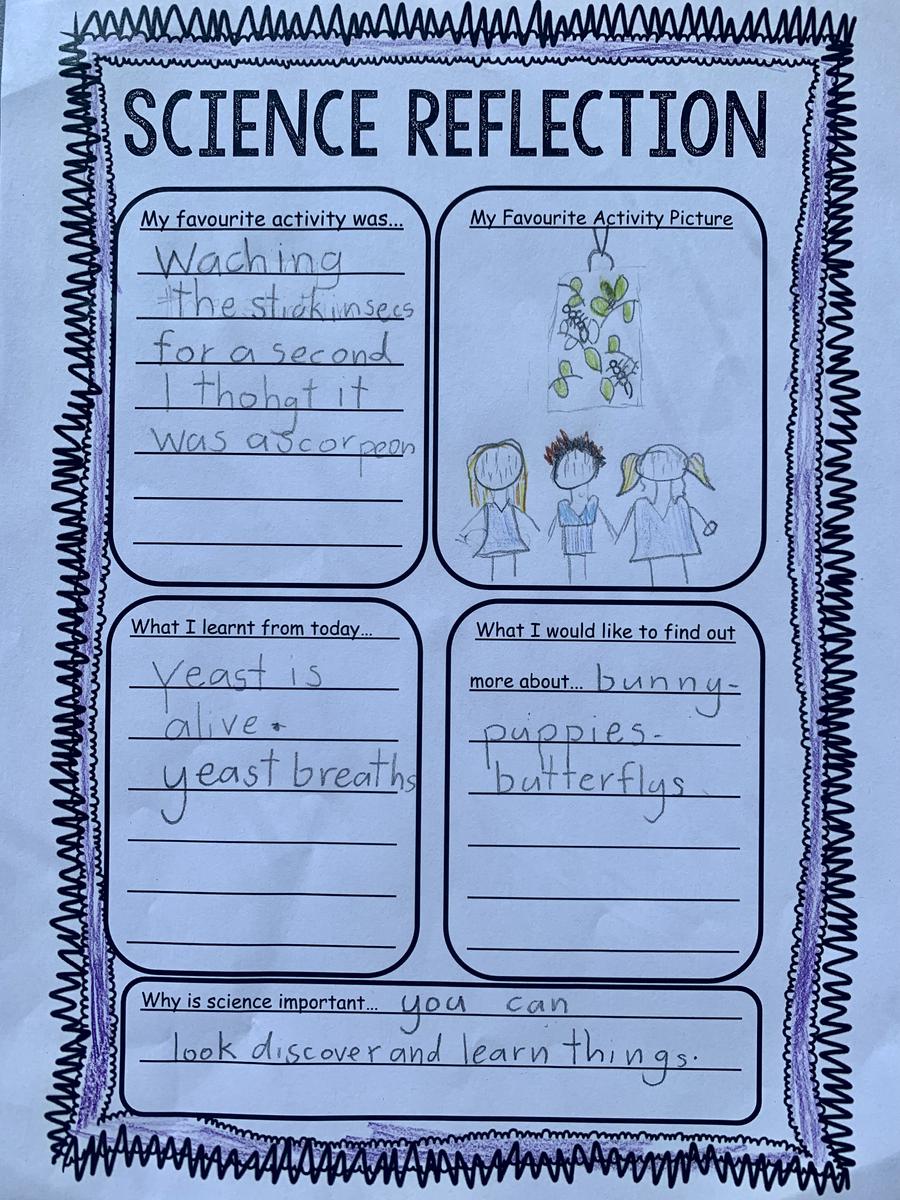 SCIENCE REFLECTION
My favourite activity was...
Waching
the stickinsecs
for a second
I thohgt it
was ascorpeon
My Favourite Activity Picture
What I learnt from today...
Yeast is
alive.
yeast breaths
What I would like to find out
more about... bunny-
puppies-
butterflys
Why is science important... you can
look discover and learn things.